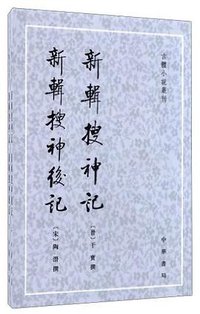 古體小說叢刊
新輯搜神記
〔晉〕干寶 撰
新輯搜神後記
〔宋〕陶潛 撰
中華書局